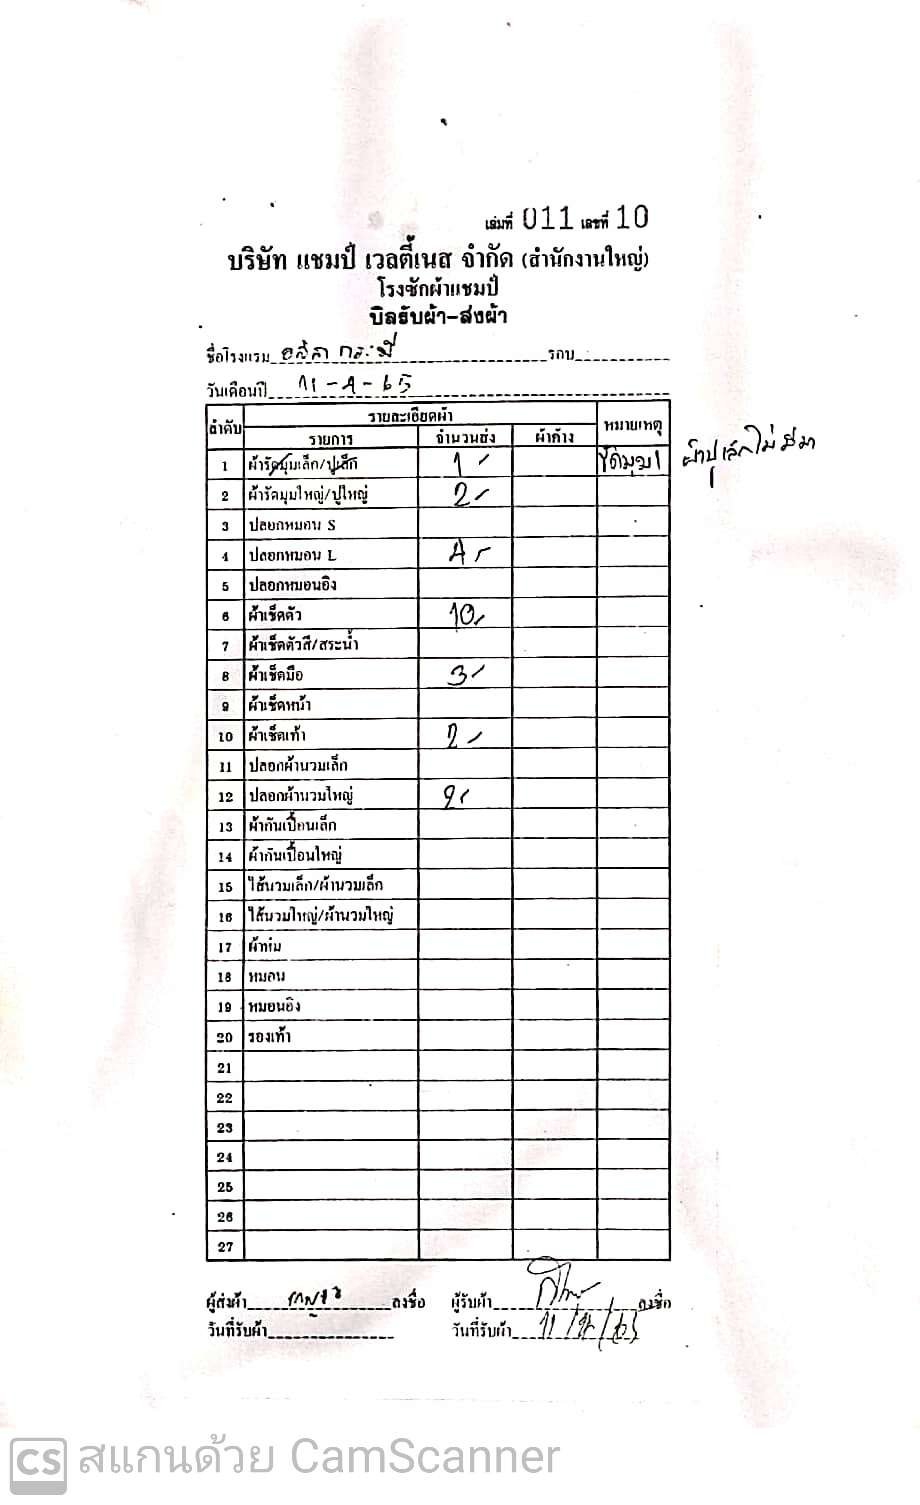 เล่มที่ 011 เลขที่ 10
บริษัท แชมป์ เวลตี้เนส จำกัด (สำนักงานใหญ่)
โรงซักผ้าแชมป์
บิลรับผ้า-ส่งผ้า
ชื่อโรงแรม กระบี่ รอบ
วันเดือนปี 11-4-65
ลำดับ รายละเอียดผ้า หมายเหตุ
รายการ จำนวนส่ง ผ้าค้าง
1 ผ้ารัดมุมเล็ก/ปูเล็ก 1 ผ้าปูเล็กไม่มีมา
2 ผ้ารัดมุมใหญ่/ปูใหญ่ 2
3 ปลอกหมอน S
4 ปลอกหมอน L 4
5 ปลอกหมอนอิง
6 ผ้าเช็ดตัว 10
7 ผ้าเช็ดตัวสี/สระน้ำ
8 ผ้าเช็ดมือ 3
9 ผ้าเช็ดหน้า
10 ผ้าเช็ดเท้า 2
11 ปลอกผ้านวมเล็ก
12 ปลอกผ้านวมใหญ่ 2
13 ผ้ากันเปื้อนเล็ก
14 ผ้ากันเปื้อนใหญ่
15 ไส้นวมเล็ก/ผ้านวมเล็ก
16 ไส้นวมใหญ่/ผ้านวมใหญ่
17 ผ้าห่ม
18 หมอน
19 หมอนอิง
20 รองเท้า
21
22
23
24
25
26
27
ผู้ส่งผ้า ลงชื่อ ผู้รับผ้า ลงชื่อ
วันที่รับผ้า วันที่รับผ้า
CS สแกนด้วย CamScanner